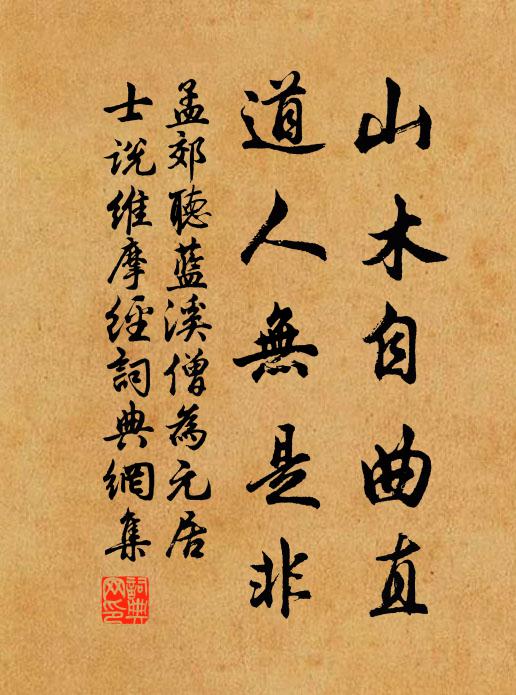 山木自曲直
道人無是非
孟郊聽藍溪僧為元居
士說維摩經詞典網集
詞典
网印